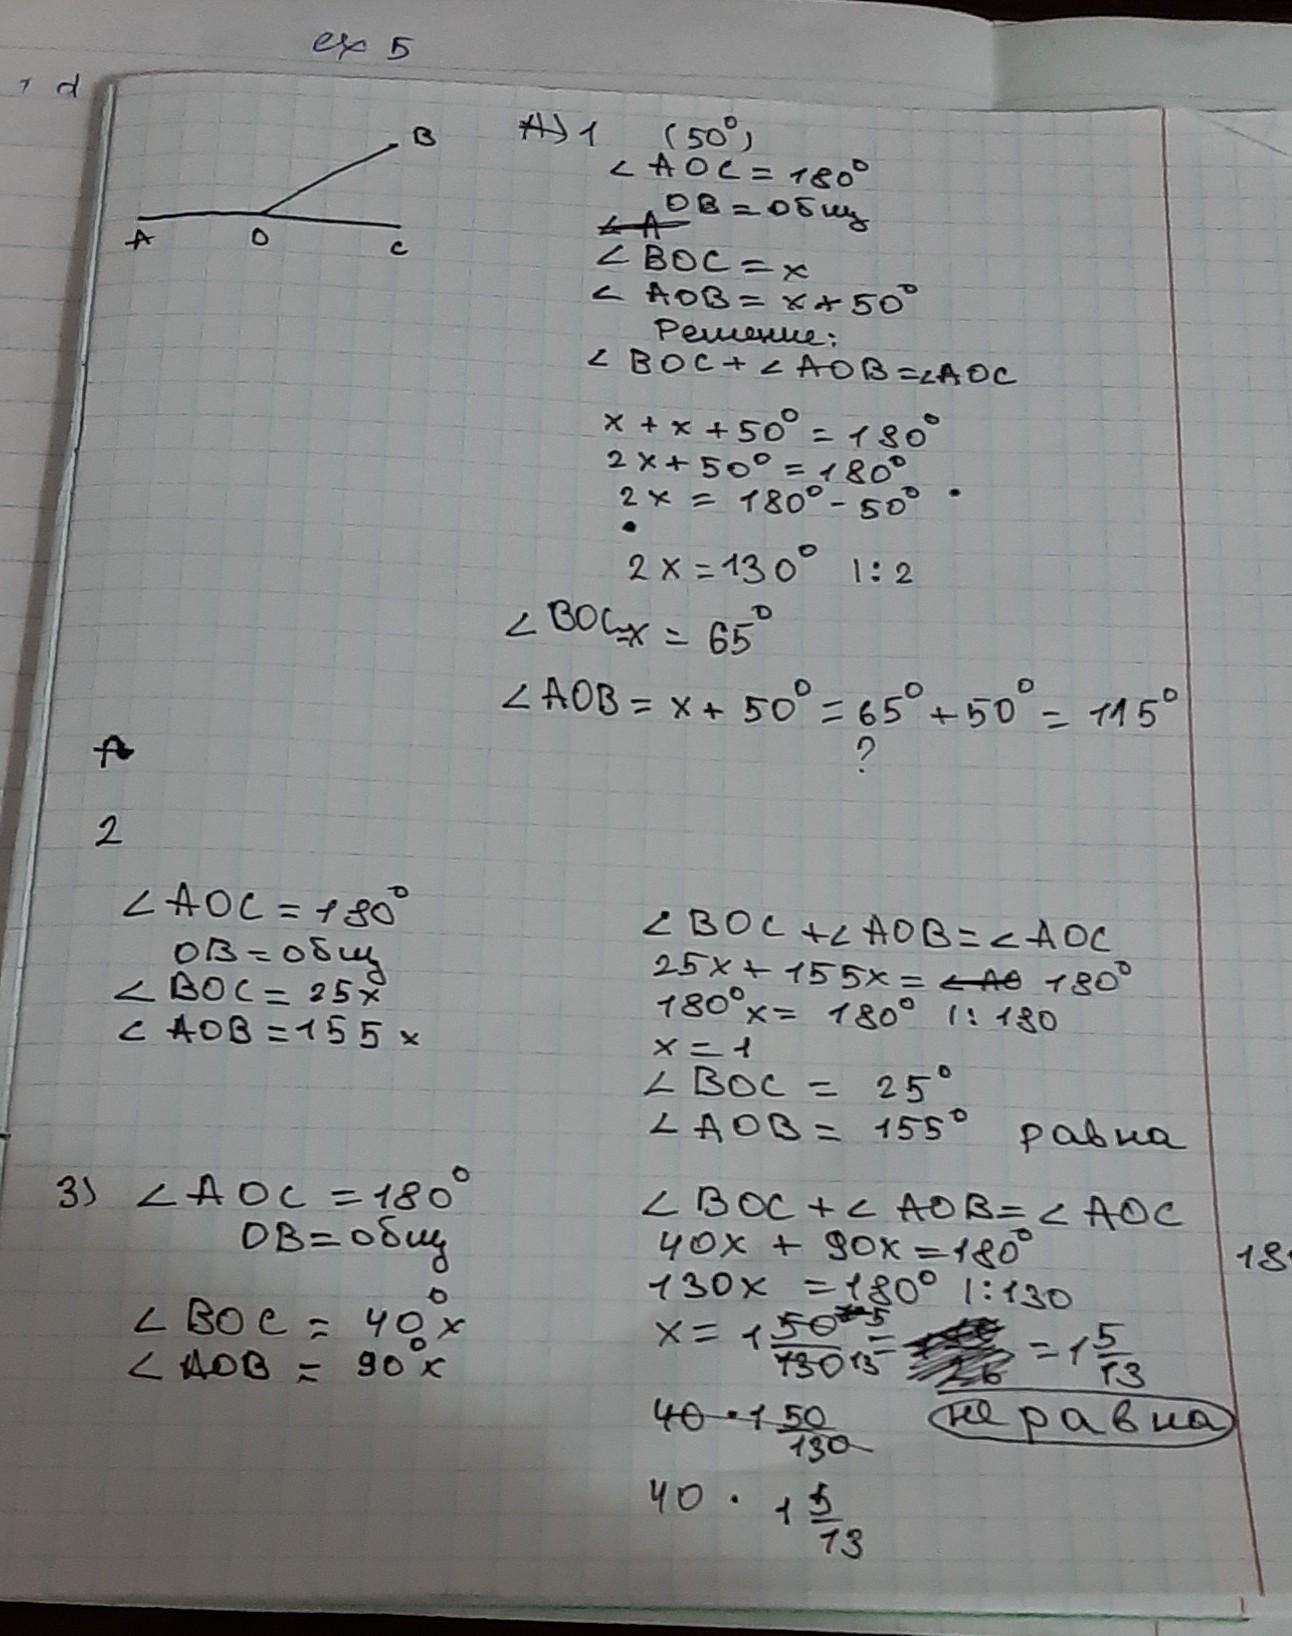 ex 5
d
B
A O C
A) 1 (50°)
∠ AOC = 180°
OB = общ
∠ A
∠ BOC = x
∠ AOB = x + 50°
Решение:
∠ BOC + ∠ AOB = ∠AOC
x + x + 50° = 180°
2x + 50° = 180°
2x = 180° - 50°
2x = 130° |: 2
∠ BOC = x = 65°
∠ AOB = x + 50° = 65° + 50° = 115°
?
2
∠ AOC = 180°
OB = общ
∠ BOC = 25x
∠ AOB = 155 x
∠ BOC + ∠ AOB = ∠ AOC
25x + 155x = ∠ AO 180°
180°x = 180° |: 180
x = 1
∠ BOC = 25°
∠ AOB = 155° равна
3) ∠ AOC = 180°
OB = общ
∠ BOC = 40°x
∠ AOB = 90°x
∠ BOC + ∠ AOB = ∠ AOC
40x + 90x = 180°
130x = 180° |: 130
x = 1 50/130 5/13 = = 1 5/13
40 · 1 50/130 не равна
40 · 1 5/13
18